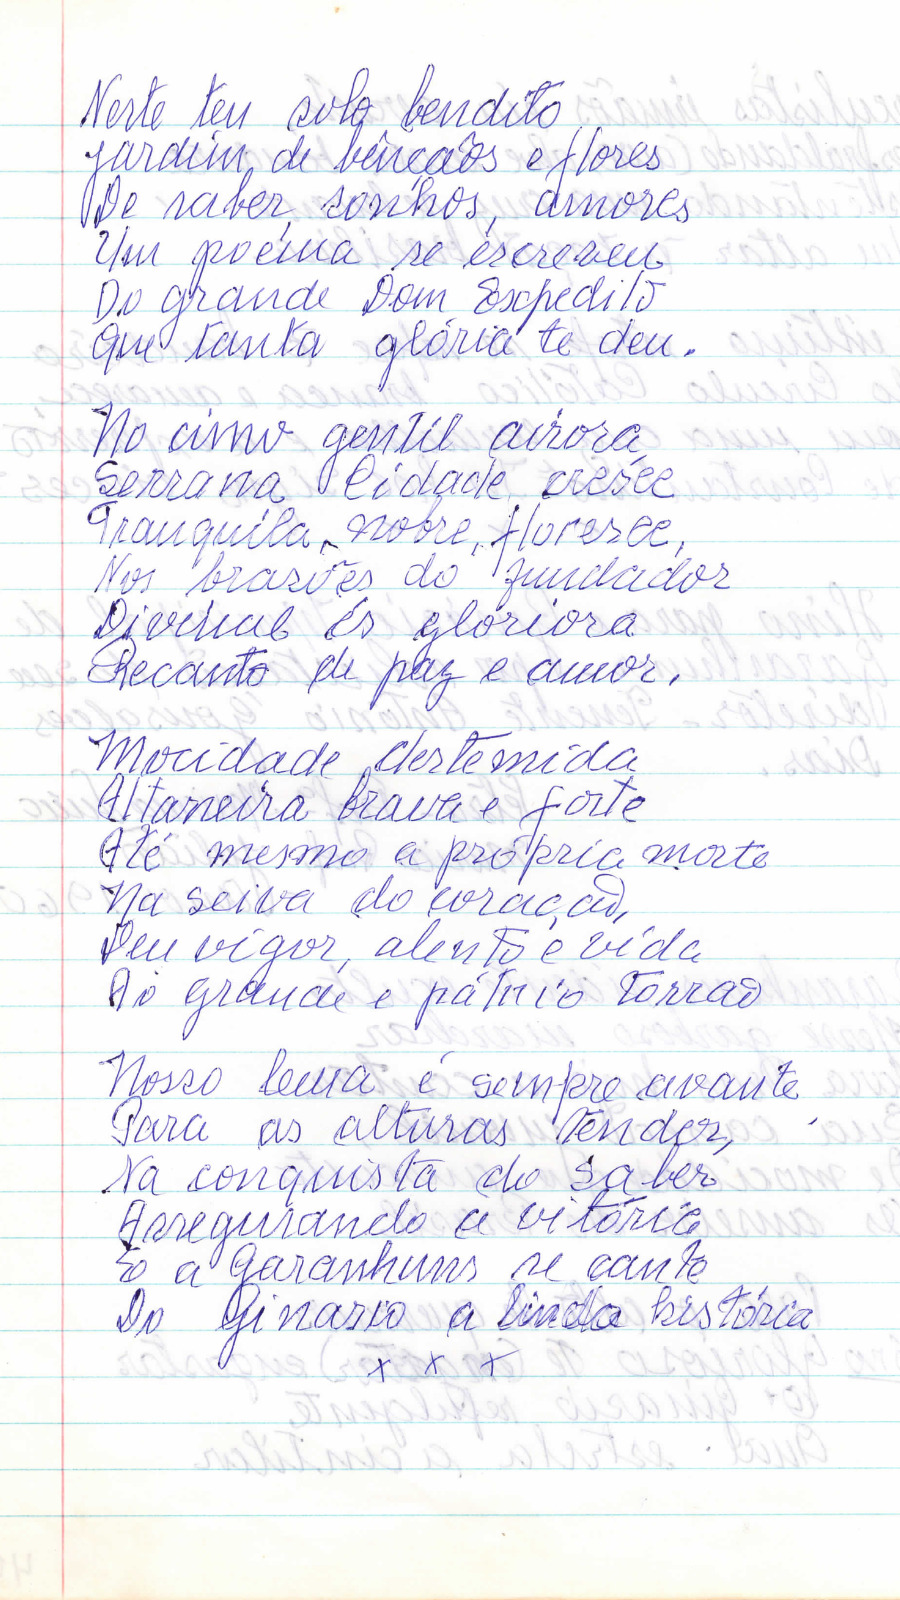 Neste teu solo bendito
Jardim de bênçãos e flores
De saber, sonhos, amores
Um poema se escreveu
Do grande Dom Expedito
Que tanta glória te deu.
No cimo gentil airosa
Serrana Cidade cresce
Tranquila, nobre, floresce,
Nos brasões do fundador
Divinal és gloriosa
Recanto de paz e amor.
Mocidade destemida
Altaneira brava e forte
Até mesmo a própria morte
Na seiva do coração,
Deu vigor, alento e vida
Ao grande e pátrio torrão
Nosso lema é sempre avante
Para as alturas tender,
Na conquista do saber
Assegurando a vitória
E a Garanhuns se cante
Do Ginasio a linda história
x x x